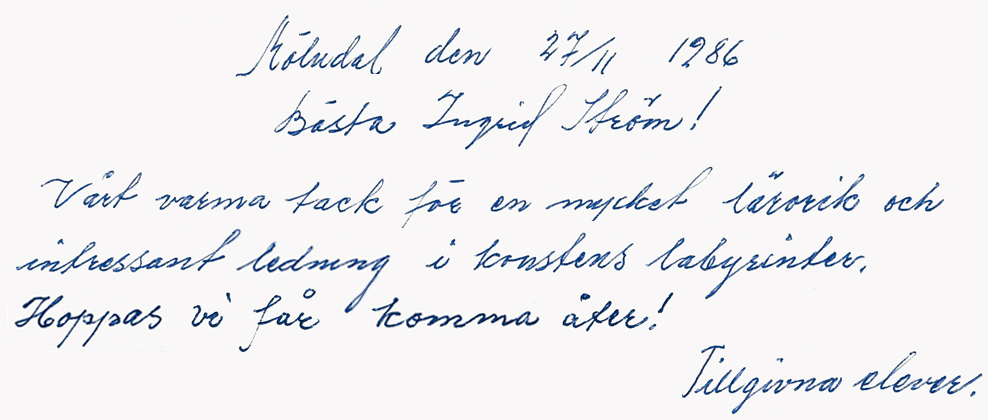 Mölndal den 27/11 1986
Bästa Ingrid Ström!
Vårt varma tack för en mycket lärorik och
intressant ledning i konstens labyrinter.
Hoppas vi får komma åter!
Tillgivna elever.